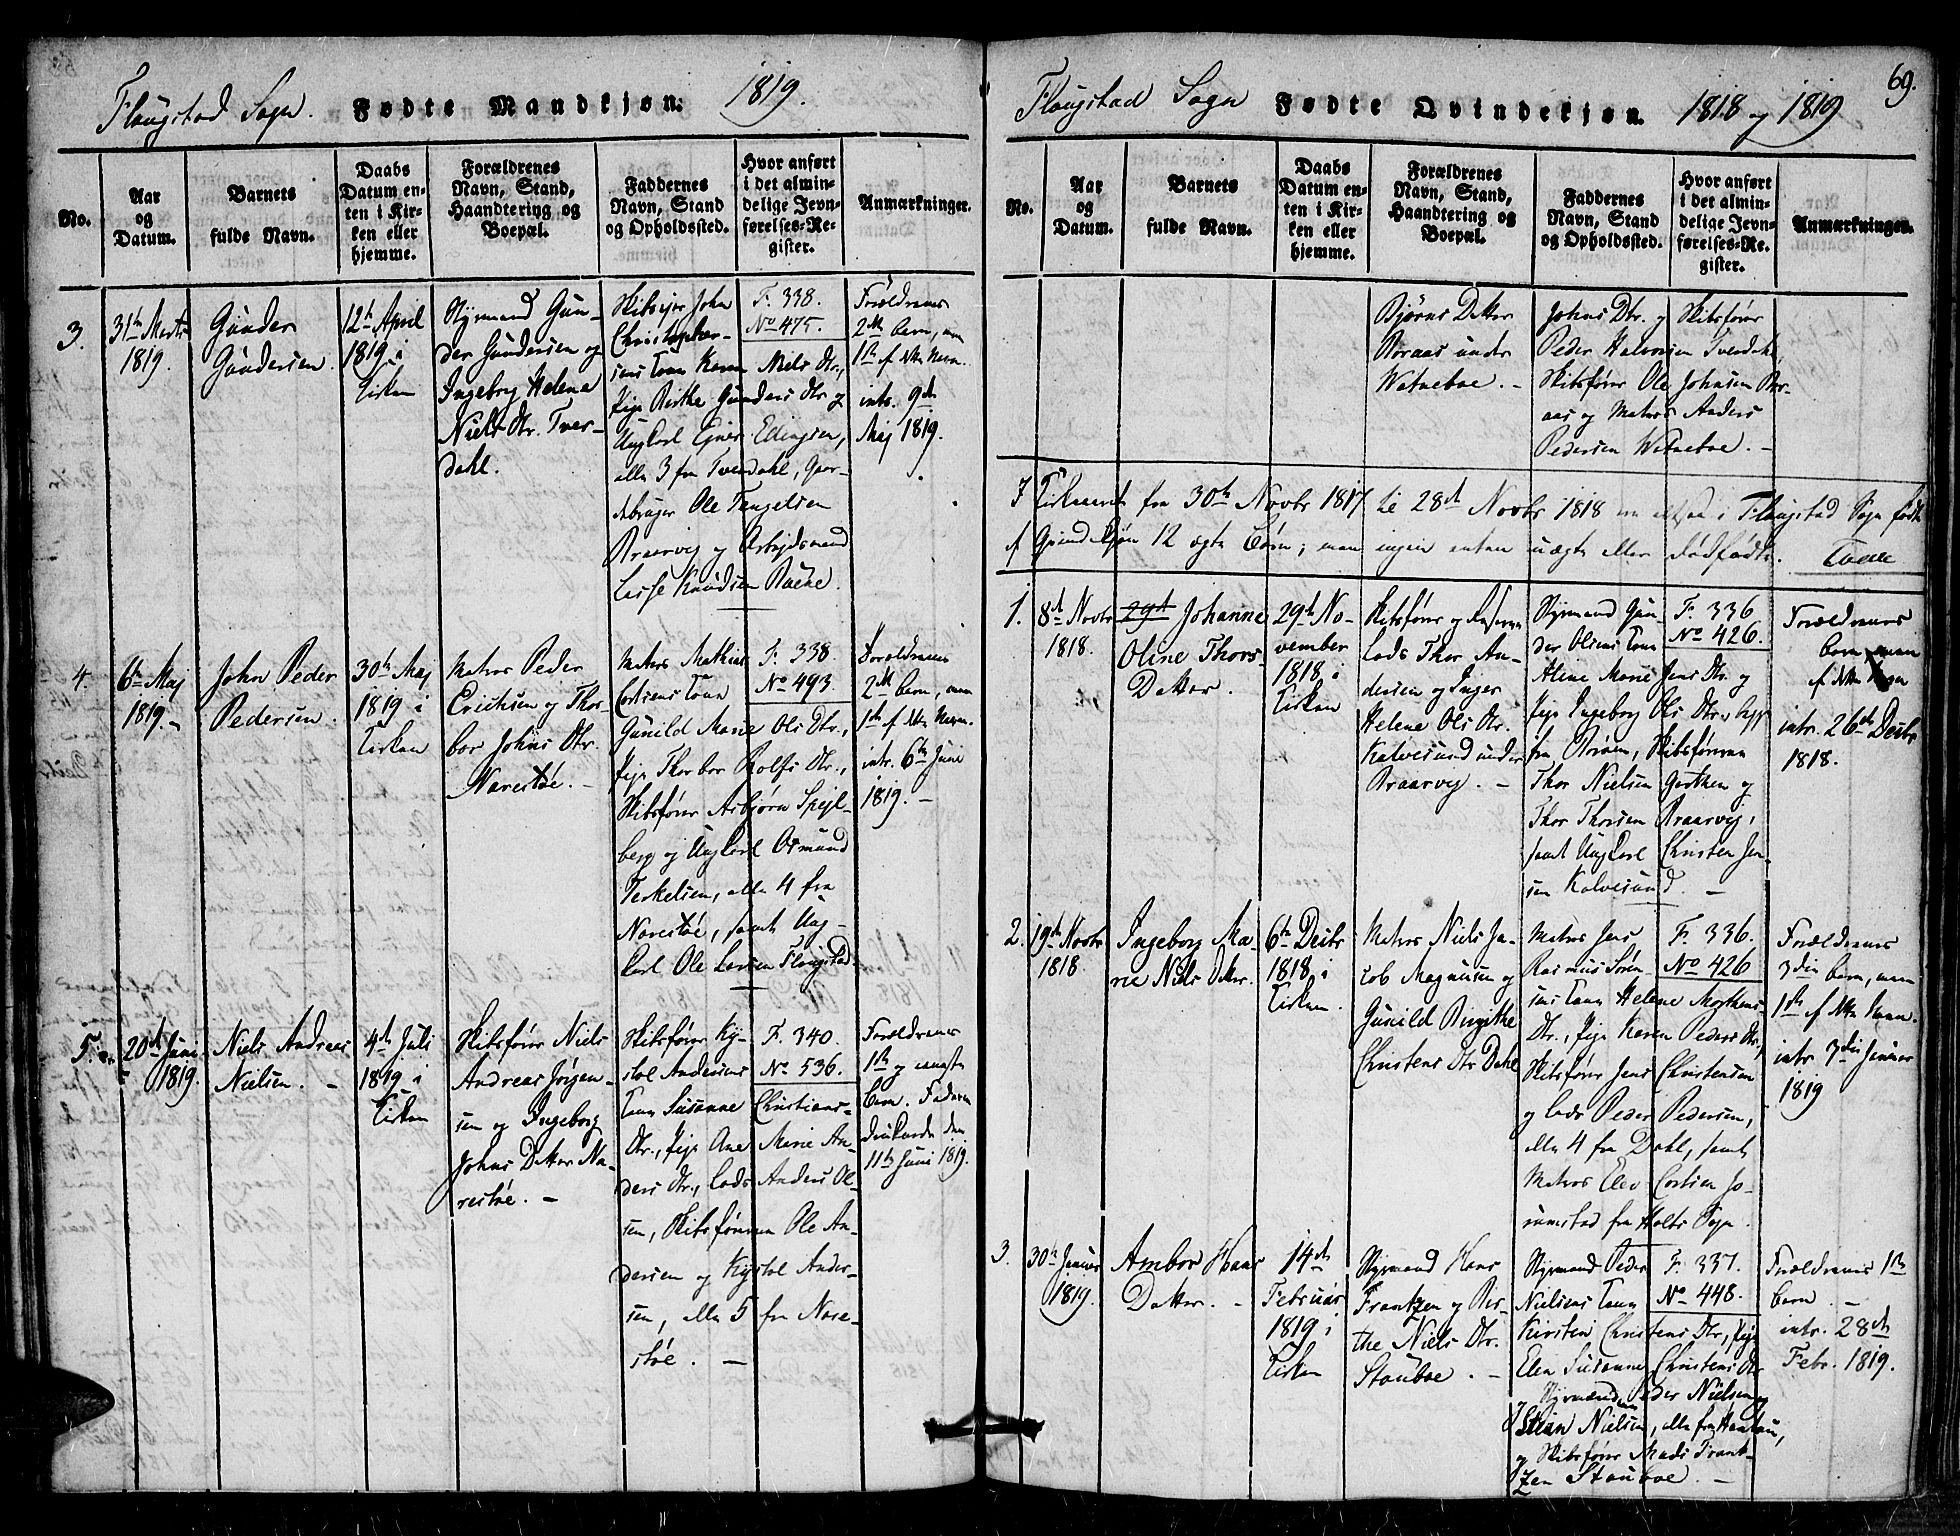 Flaugstad Sogn. Fødte Mandkjøn. 1819.
No.
Aar
og
Datum.
Barnets
fulde Navn.
Daabs
Datum en-
ten i Kir-
ken eller
hjemme.
Forældrenes
Navn, Stand,
Haandtering og
Boepæl.
Faddernes
Navn, Stand
og Opholdssted.
Hvor anført
i det almin-
delige Jevn-
førelses-Re-
gister.
Anmærkninger.
3.
31te Marts
1819.
Gunder
Gundersen.
12te April
1819 i
Kirken
Styrmand Gun-
der Gundersen og
Ingeborg Helena
Niels Dtr. Tver-
dahl.
Skibsejer John
Christopher-
sens Kone Karen Niels Dtr.,
Pige Birthe Gunders Dtr. og
Ungkarl Ejner Edingsen,
alle 3 fra Tverdahl, Gaar-
dbruger Ole Tengelsen
Kraarvig og Arbejdsmand
Lasse Knudsen
F. 338.
No 475.
Forældrenes
2det barn, men
1te af dette Navn.
intr. 9de
Maj 1819.
4.
6te Maj
1819. -
John Peder
Pedersen.
30te Maj
1819 i
Kirken
Matros Peder
Erichsen og Thor-
bor Johns Dtr.
Narestøe. -
Matros Mathias
Kone
Gunild Marie Ols Dtr.,
Pige Thorbor Rolfs Dtr.,
Skibsfører Asbjørn Spejl-
berg og Ungkarl Osmund
Terkelsen, alle 4 fra
Narestøe, samt Ung-
karl Ole Larsen Flaugstad.
F. 338.
No 493.
Forældrenes
2det barn, men
1te af dette Navn.
intr. 6te Juni
1819. -
5.
20de Juni
1819.
Niels Andreas
Nielsen. -
4de Juli
1819 i
Kirken
Skibsfører Niels
Andreas Jørgen-
sen og Ingeborg
Johns Datter Na-
restøe. -
Skibsfører Ky-
stol Andersens
Kone Susanne Christians-
Dtr., Pige Ane Marie An-
ders Dtr., Lods Anders Ol-
sen, Skibsførerne Ole An-
dersen og Kystol Ander-
sen, alle 5 fra Nare-
støe. -
F. 340.
No 536.
Forældrenes
1te og
barn. Faderen
druknede den
11te Juni 1819.
Flaugstad Sogn Fødte Qvindekjøn. 1818 og 1819
69.
No.
Aar
og
Datum.
Barnets
fulde Navn.
Daabs
Datum en-
ten i Kir-
ken eller
hjemme.
Forældrenes
Navn, Stand,
Haandtering og
Boepæl.
Faddernes
Navn, Stand
og Opholdssted.
Hvor anført
i det almin-
delige Jevn-
førelses-Re-
gister.
Anmærkninger.
Bjørns Datter
Boraas under
Watneboe. -
Johns Dtr. og Skibsfører
Peder Halvorsen Tverdahl,
Skibsfører Ole Johnsen Bor-
aas og Matros Anders
Pedersen Watneboe. -
I Kirkeaaret fra 30te Novbr 1817 til 28de Novbr 1818 er altsaa i Flaugstad Sogn fødte
af Qvindekjøn 12 ægte Børn; men ingen enten uægte eller dødfødte.
1.
8de Novbr
1818.
29de Johanne
Oline Thors-
Datter.
29de No-
vember
1818 i
Kirken
Skibsfører og
Lods Thor An-
dersen og Inger
Helene Ols Dtr.
Kalvesund under
Kraarvig. -
Styrmand Gun-
der Olsens Kone
Aline Marie Jens Dtr. og
Pige Ingeborg Ols Dtr., begge
fra Skibsførerne
Thor Nielsen Gjerthen og
Thor Thorsen Kraarvig,
samt Ungkarl Christen Jen-
sen Kalvesund. -
F. 336
No 426.
Forældrenes
barn, men
af dette Navn
intr. 26de Decbr
1818.
2.
19de Novbr
1818.
Ingeborg Ma-
rie Niels Datter.
6te Decbr
1818 i
Kirken.
Matros Niels Ja-
cob Magnusen og
Gunild Birgithe
Christens Dtr Dahl
Matros Jens
Rasmus Søren-
sens Kone Helene Mortens
Dtr., Pige Karen Peders Dtr.,
Skibsfører Jens Christensen
og Lods Peder Pedersen,
alle 4 fra Dahl, samt
Matros Elev
fra Holts Sogn.
F. 336.
No 426
Forældrenes
3die barn, men
1te af dette Navn.
intr. 3die Januar
1819
3.
30te Januar
1819.
Ambor Hans
Datter. -
14de
Februar
1819 i
Kirken
Styrmand Hans
Frantzen og Bir-
the Niels Dtr.
Stauboe. -
Styrmand Peder
Nielsens Kone
Kirsten Christens Dtr, Pige
Elen Susanne Christens Dtr
Styrmændene Peder Nielsen og
Stian Nielsen, alle fra
og Skibsfører Mads Frant-
zen Stauboe. -
F. 337.
No 448.
Forældrenes 1te
barn. -
intr. 28de
Febr. 1819.